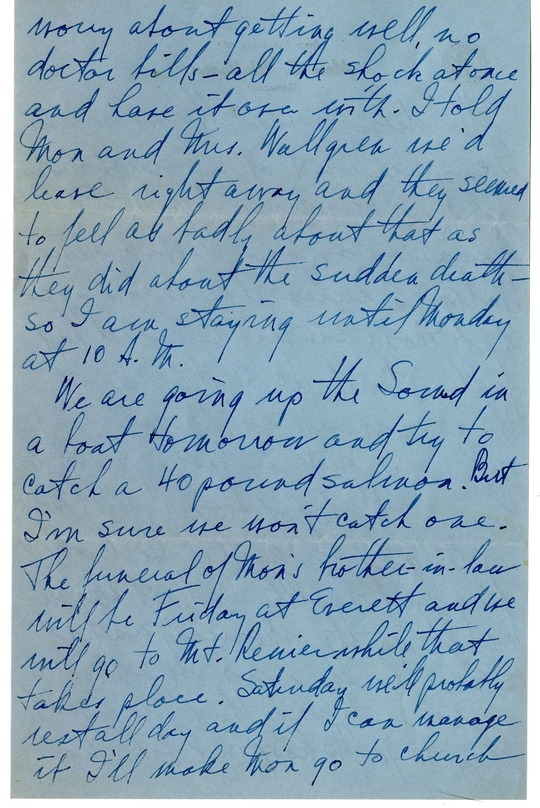 worry about getting well, no
doctor bills - all the shock at once
and have it over with. I told
Mon and Mrs. Wallgren we'd
leave right away and they seemed
to feel as badly about that as
they did about the sudden death -
so I am staying until Monday
at 10 A.M.
We are going up the Sound in
a boat tomorrow and try to
catch a 40 pound salmon. But
I'm sure we won't catch one.
The funeral of Mon's brother-in-law
will be Friday at Everett and we
will go to Mt. Renier while that
takes place. Saturday we'll probably
rest all day and if I can manage
it I'll make Mon go to church